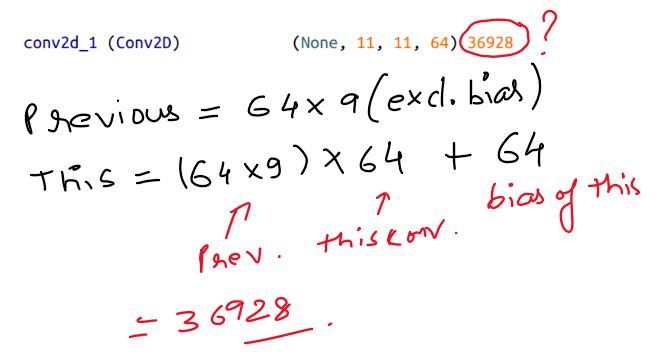 conv2d_1 (Conv2D) (None, 11, 11, 64) 36928 ?
Previous = 64 x 9 (excl. bias)
This = (64 x 9) x 64 + 64
Prev. this conv. bias of this
= 36928.